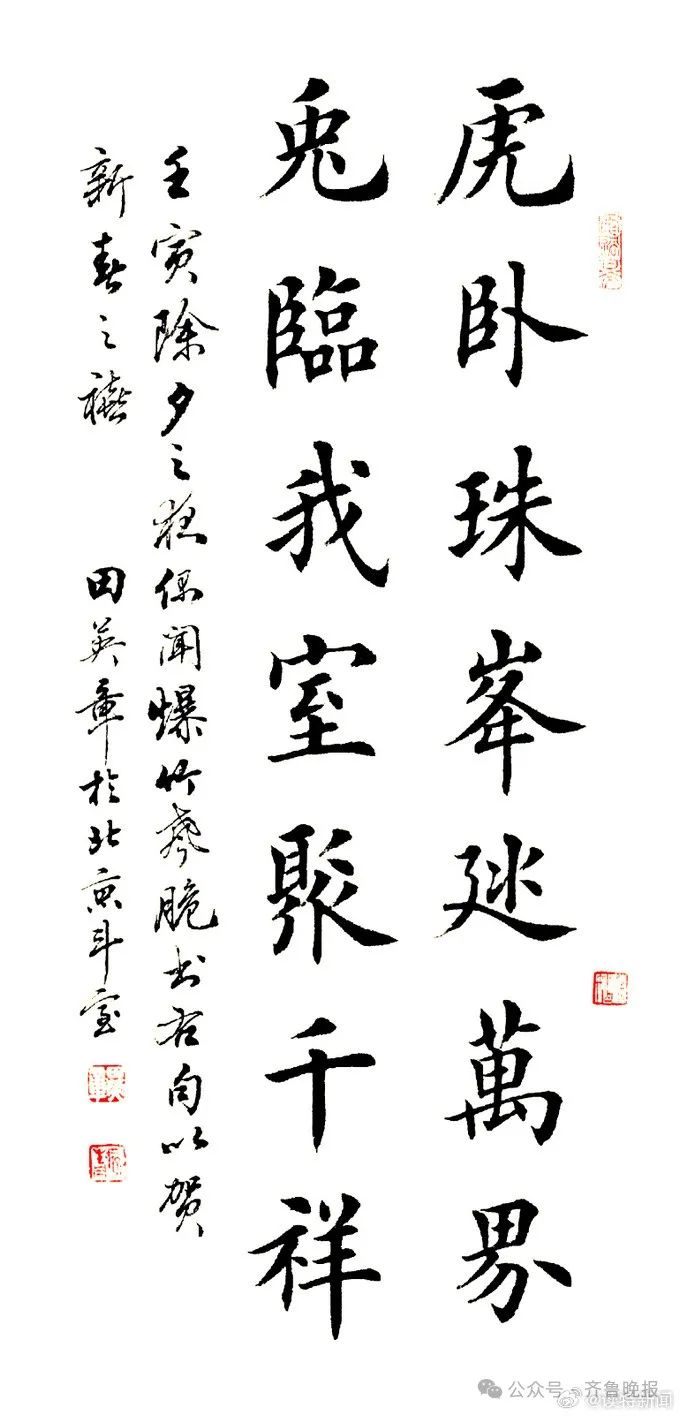 虎卧珠峯廵萬界
兔臨我室聚千祥
壬寅除夕之夜偶聞爆竹聲脆书右句以贺
新春之禧 田英章於北京斗室
公众号·齐鲁晚报
@读特新闻